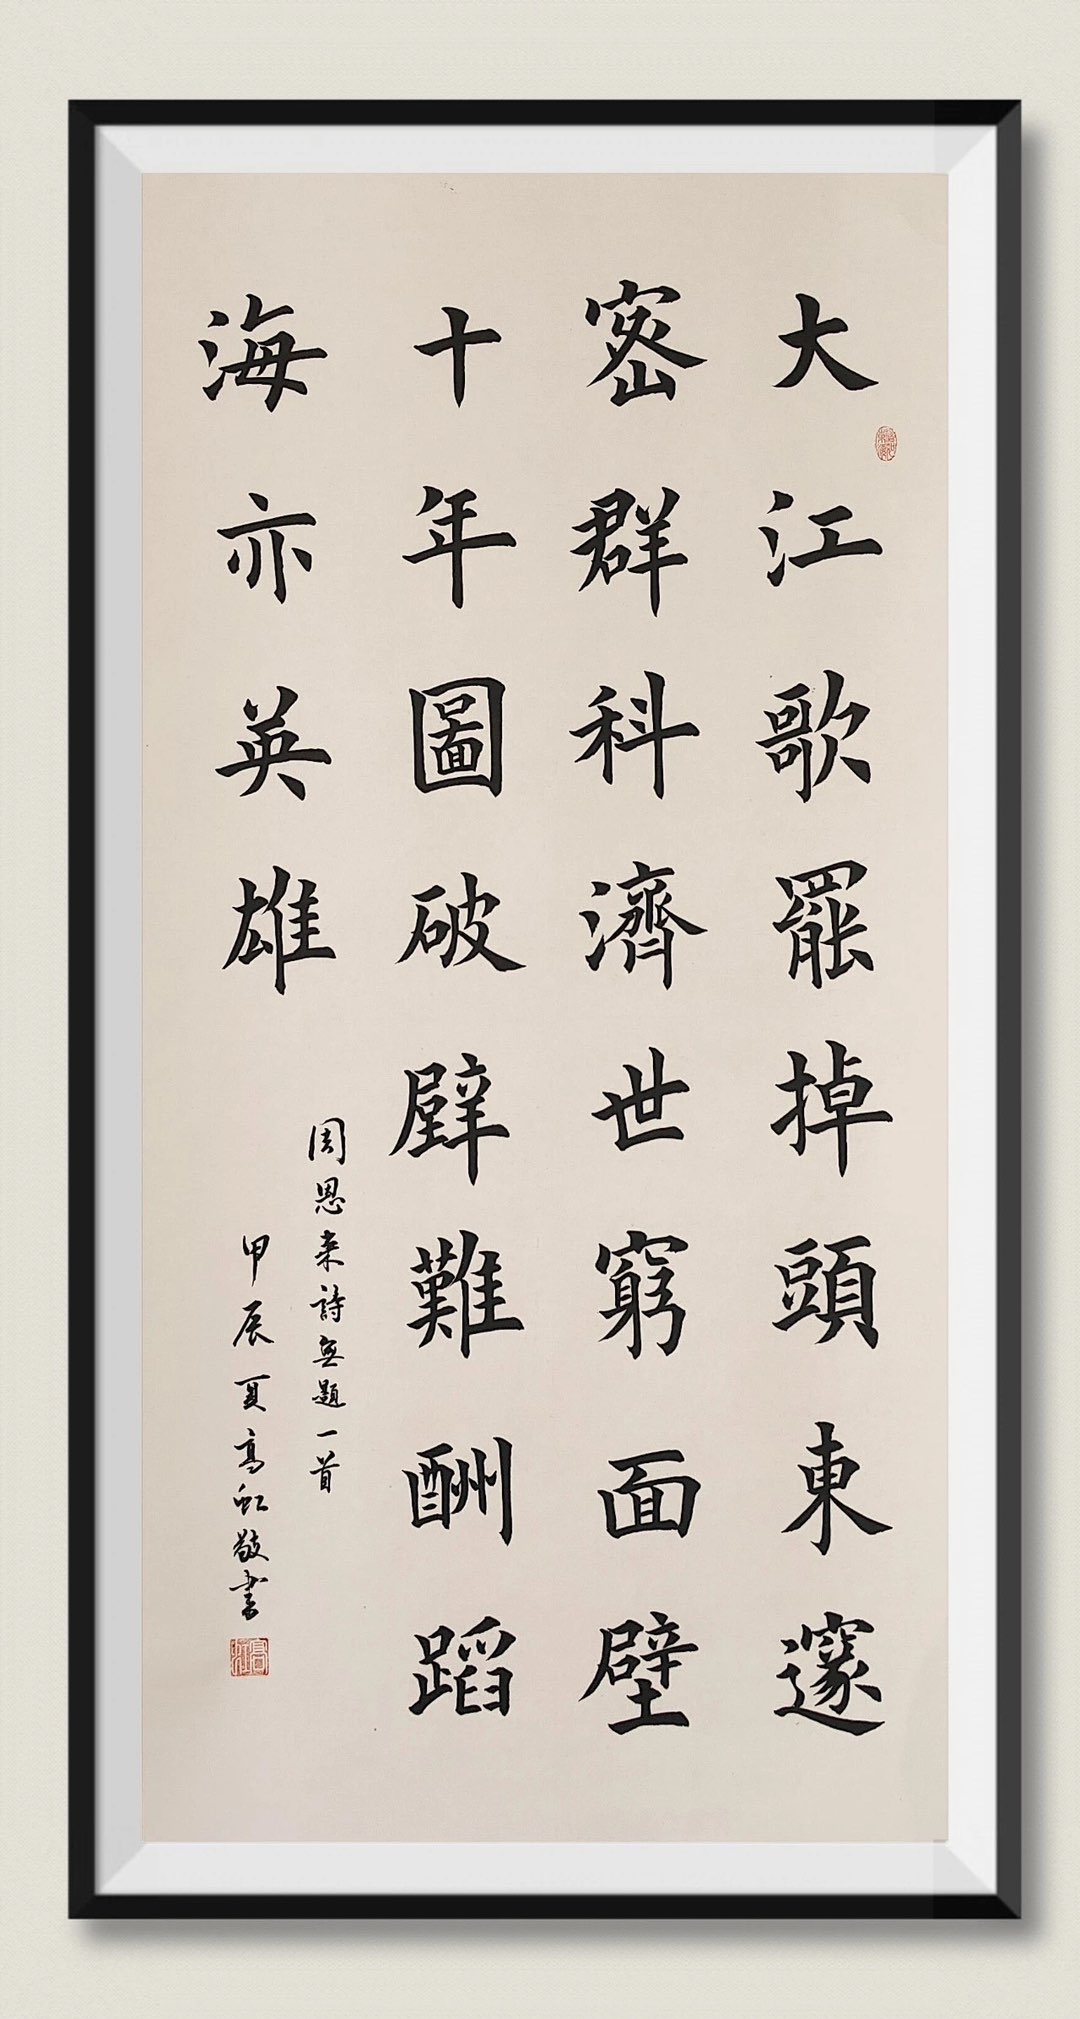 大江歌罷掉頭東邃
密群科濟世窮面壁
十年圖破壁難酬蹈
海亦英雄
周恩来詩無題一首
甲辰夏高虹敬書